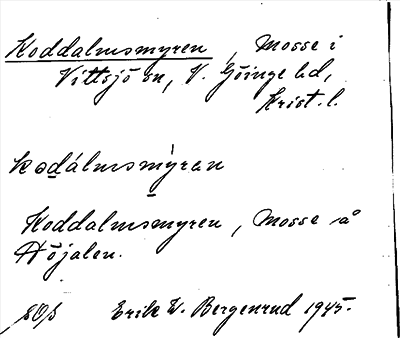 Koddalmsmyren, Mosse i
Vittsjö sn, V. Göinge hd,
Krist. l.
kodálmsmỳran
Koddalmsmyren, Mosse på
Höjalen.
Erik W. Bergenrud 1945.